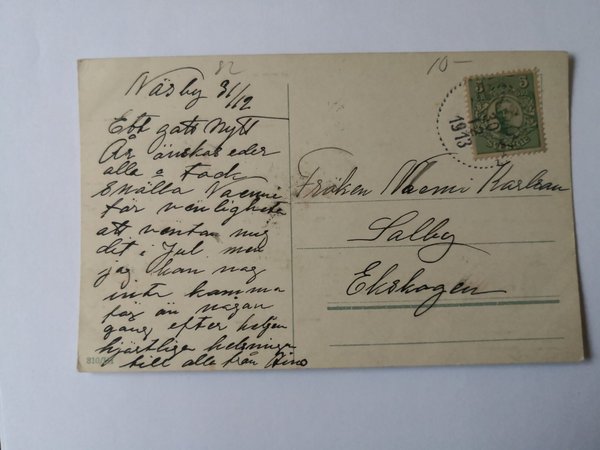 82
10-
Näsby 31/12
Ett gott Nytt
År önskas eder
alla o Tack
snälla Naemi
för vänligheten
att väntan mig
dit i Jul men
jag kan nog
inte komma
för än någon
gång efter helgen
hjärtliga helsningar
till alla från Aino
310/
5
1913
Fröken Naemi Karlson
Salby
Ekskogen